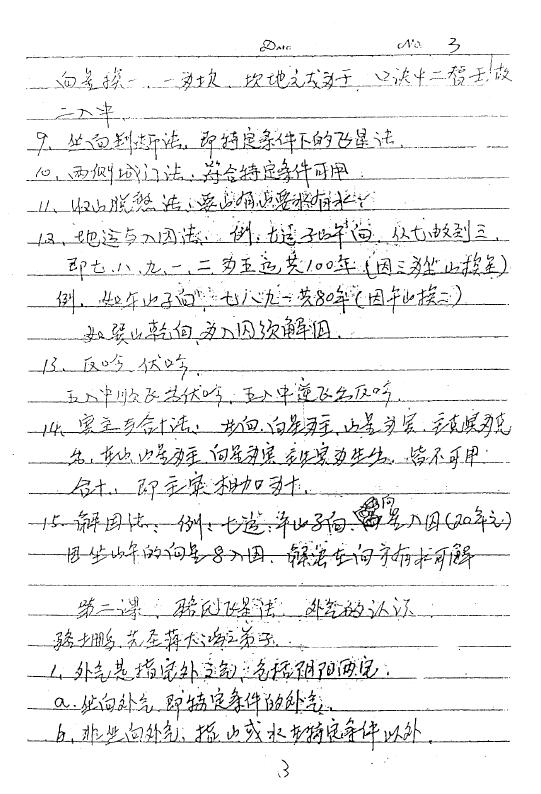 Date No. 3
向星挨一、一为坎、坎地元龙为壬、口诀中二替壬、故
二入中.
9、坐向判断法、即特定条件下的飞星法.
10、两侧城门法、符合特定条件可用.
11、收山脱煞法、要山有山要水有水.
12、地运与入囚法: 例: 七运子山午向、从七数到三
即七、八、九、一、二为五运共100年(因三为坐山挨星)
例、如午山子向、七八九一共80年(因午山挨二)
如巽山乾向为入囚须解囚.
13、反吟 伏吟
五入中顺飞出伏吟、五入中逆飞出反吟.
14、宾主与合十法: 在向、向星为主、山星为宾、主克宾为克
出、在山、山星为主、向星为宾 主生宾为生出、皆不可用
合十、即主宾相加为十.
15、解囚法: 例: 七运: 午山子向、向星入囚(20年之)
因坐山午的向星8入囚、解密在向方有水可解
第二课、骆氏飞星法 外气的认识
骆士鹏、先至蒋大鸿之弟子.
1、外气是指宅外之气、包括阴阳两宅.
a、坐向外气、即特定条件的外气.
b、非坐向外气、指山或水在特定条件以外.
3